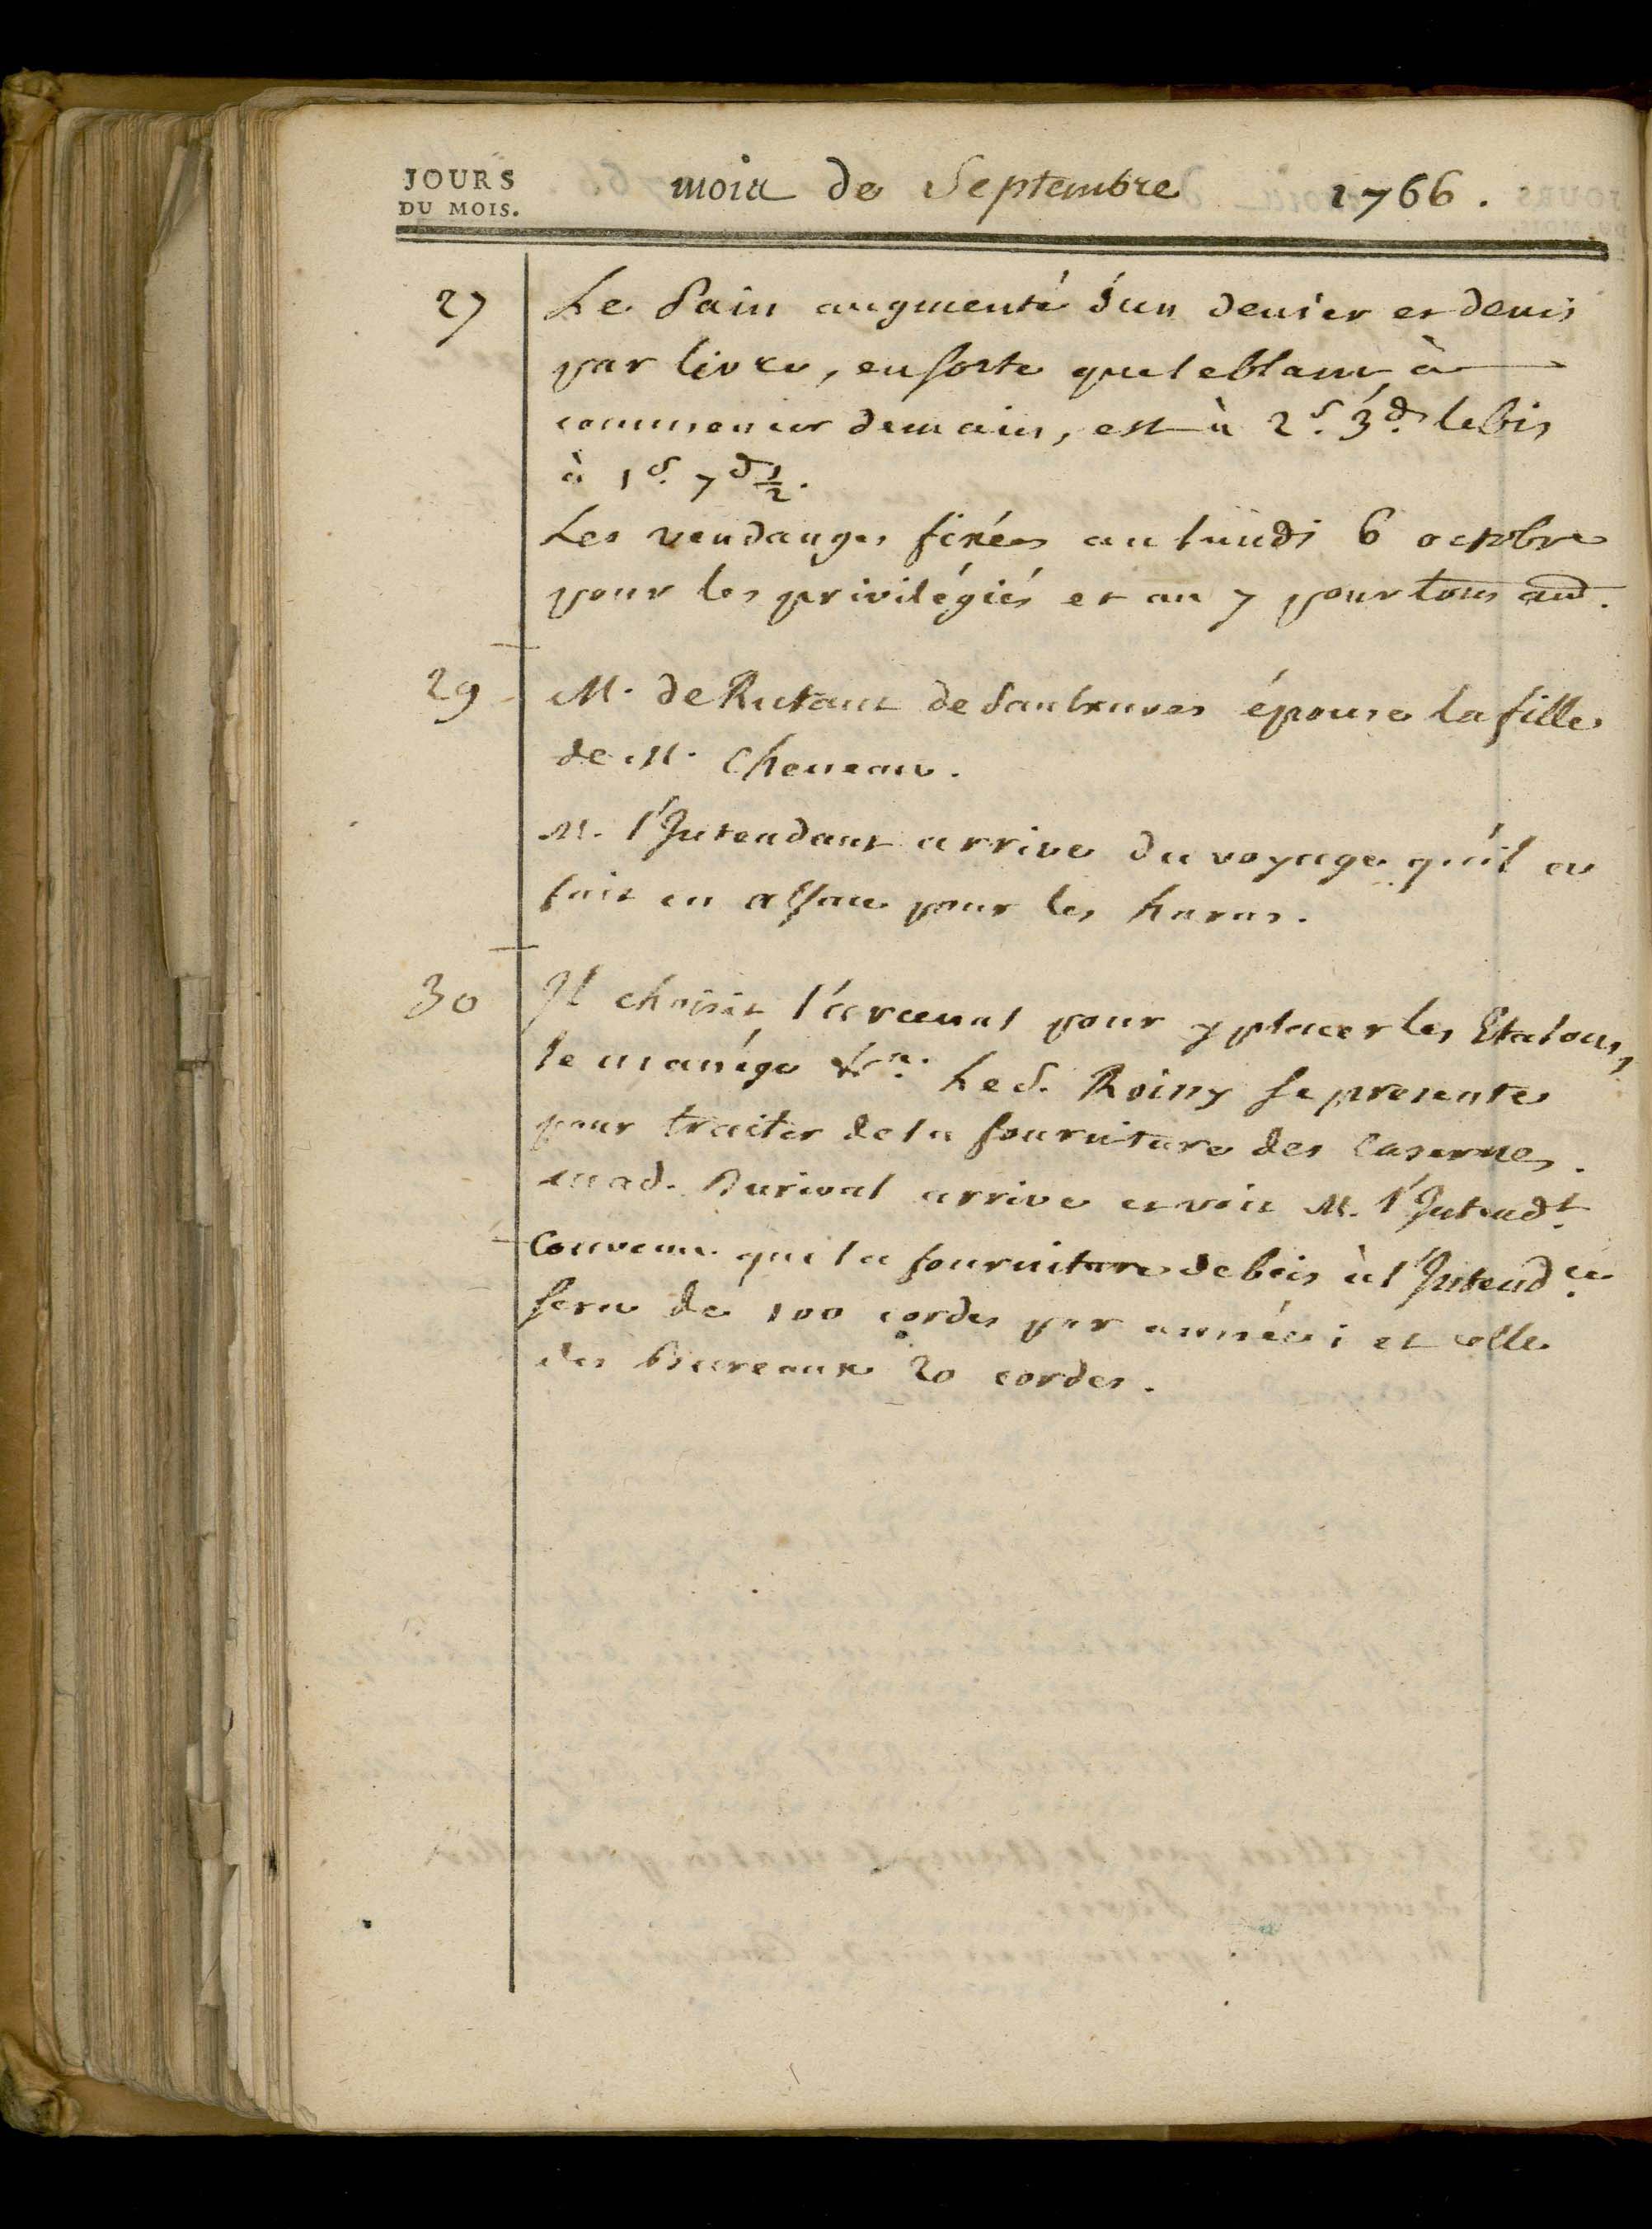 JOURS
DU MOIS.
mois de Septembre 1766.
27 Le Pain augmenté d'un denier et demi
par livre, ensorte que le blanc, à
commencer demain, est à 2.s 3.d le bis
à 1.s 7.d ½.
Les vendanges fixées au lundi 6 octobre
pour les privilégiés et au 7 pour tous aud.
29 M. de Rutant de Saulxures épouse la fille
de M. Cheneau.
M. l'Intendant arrive du voyage qu'il a
fait en alsace pour les haras.
30 Il choisit l'arcenal pour y placer les Etalons,
le manége &.a Le S. Roiny se presente
pour traiter de la fourniture des casernes.
mad. Durival arrive et voit M. l'Intend.t
Convenu que la fourniture de bois à l'Intend.ce
sera de 100 cordes par année; et celle
des Bureaux 20 cordes.